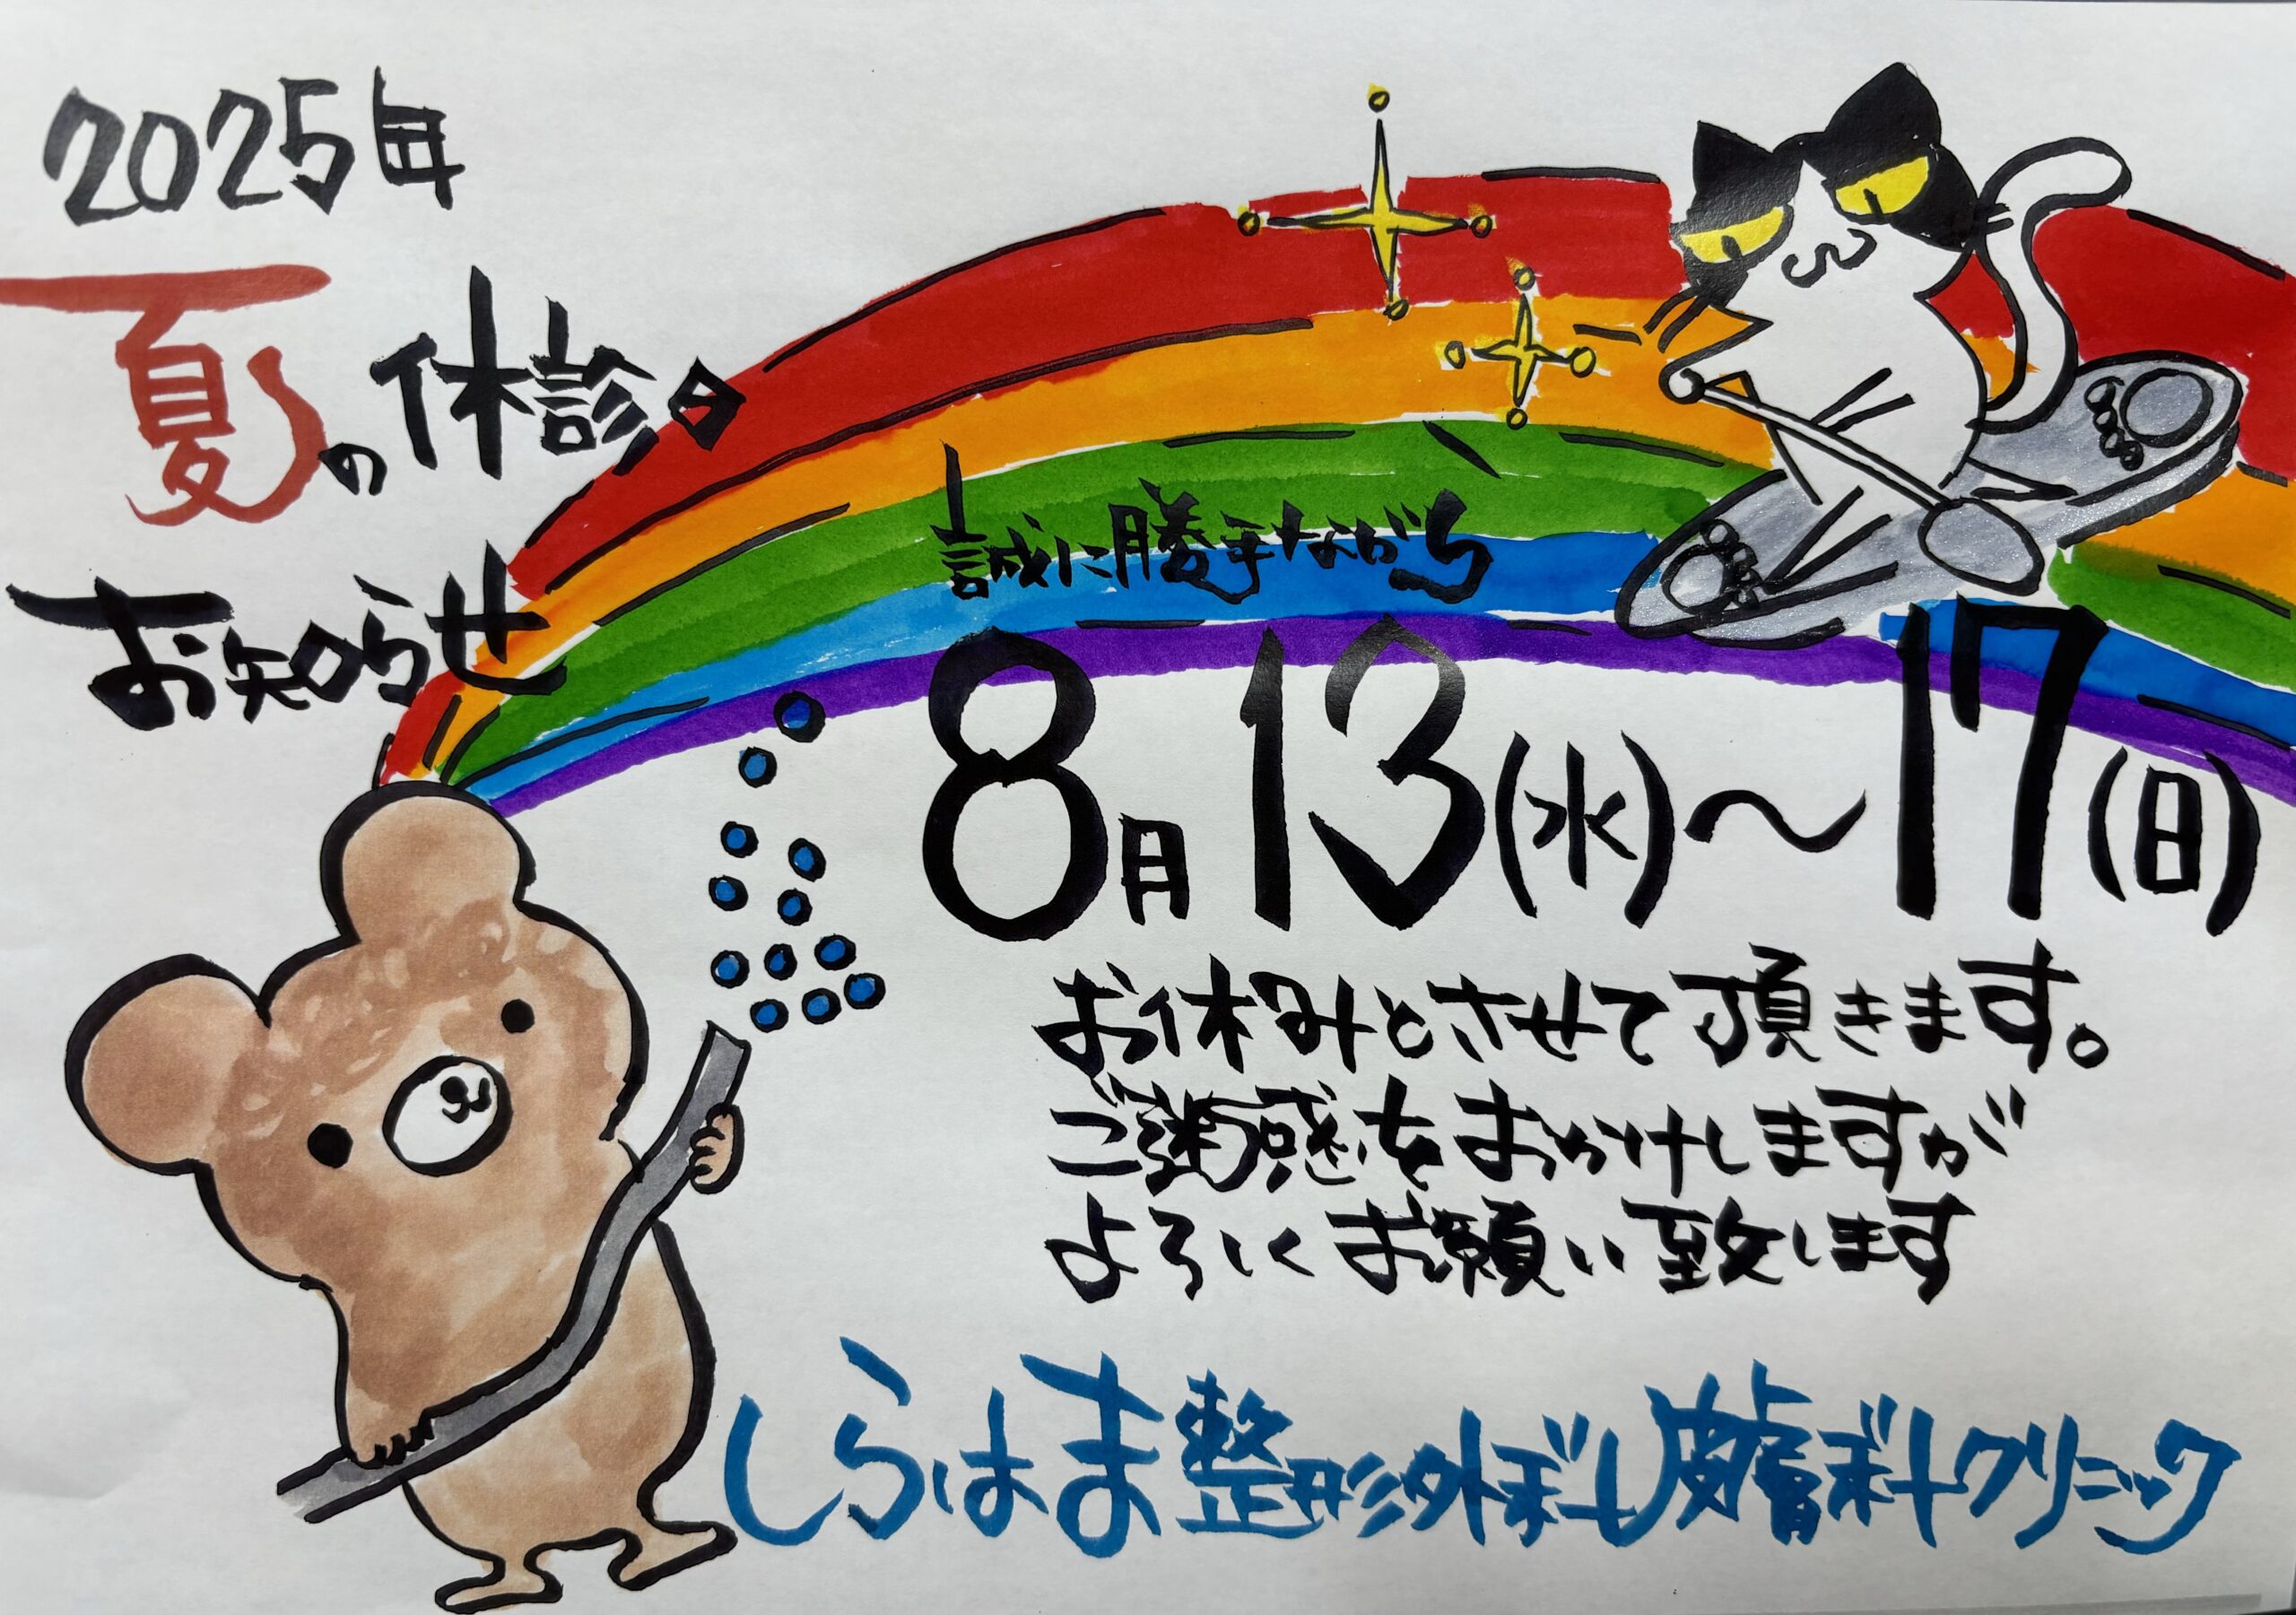 2025年
夏の休診の
お知らせ
誠に勝手ながら
8月13(水)～17(日)
お休みとさせて頂きます。
ご迷惑をおかけしますが
よろしくお願い致します
しらはま整形外科皮膚科クリニック